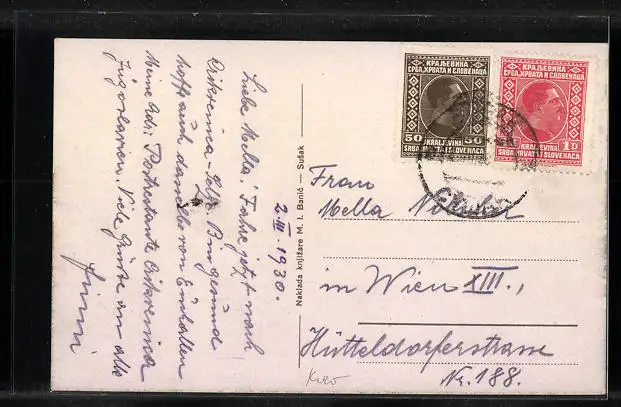 Liebe Mella! Fahre jetzt nach
Crikvenica. Bin gesund
hoffe auch dasselbe von Euch allen
Meine Adr: Postrestante Crikvenica
Jugoslavien. Viele Grüße an alle
2.III.1930.
Naklada knjižare M. I. Banić — Sušak
КРАЉЕВИНА
СРБА, ХРВАТА И СЛОВЕНАЦА
50 50
KRALJEVINA
SRBA HRVATA I SLOVENACA
КРАЉЕВИНА
СРБА, ХРВАТА И СЛОВЕНАЦА
1 D
KRALJEVINA
SRBA HRVATA I SLOVENACA
Frau
Mella
in Wien XIII.,
Hütteldorferstrasse
Nr. 188.